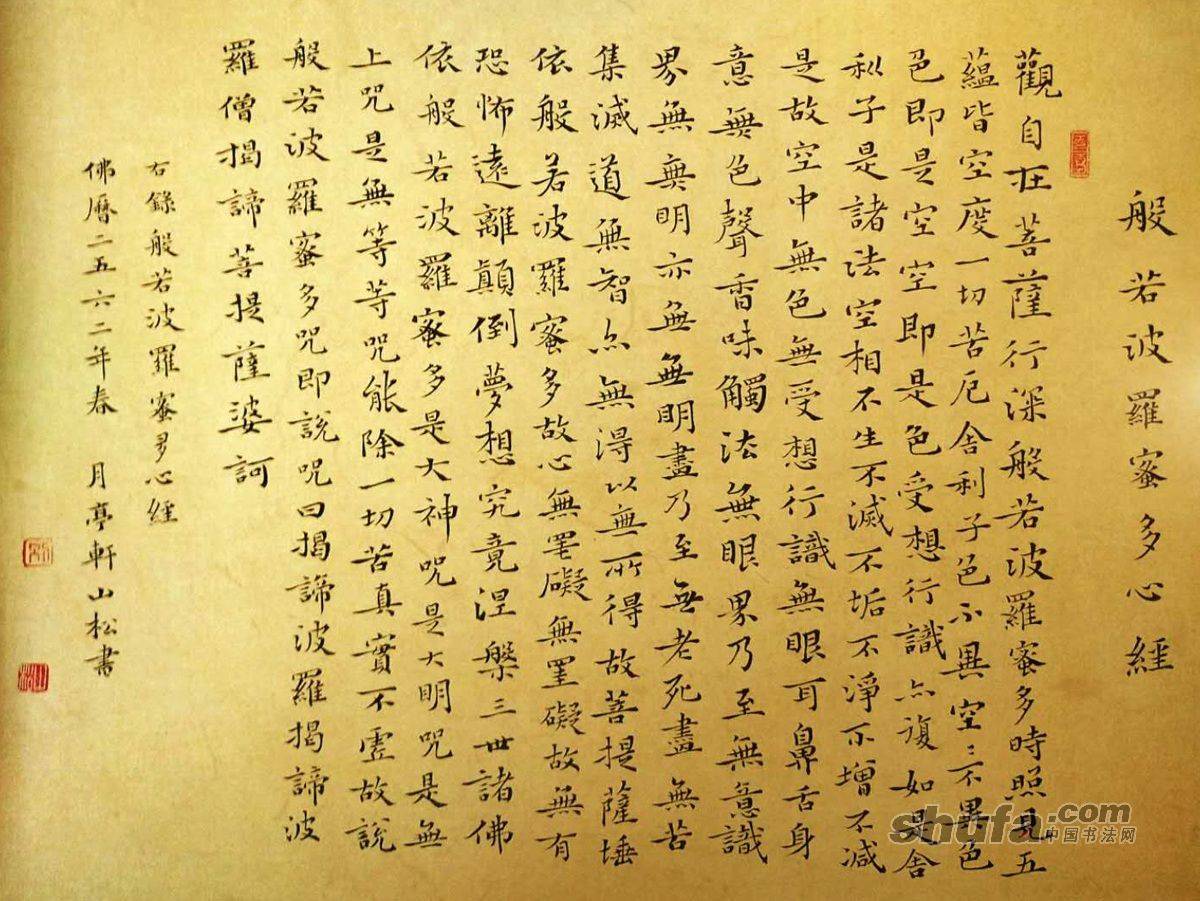 般若波羅蜜多心經
觀自在菩薩行深般若波羅蜜多時照見五
蘊皆空度一切苦厄舍利子色不異空〻不異色
色即是空空即是色受想行識亦復如是舍
利子是諸法空相不生不滅不垢不淨不增不減
是故空中無色無受想行識無眼耳鼻舌身
意無色聲香味觸法無眼界乃至無意識
界無無明亦無無明盡乃至無老死盡無苦
集滅道無智亦無得以無所得故菩提薩埵
依般若波羅蜜多故心無罣礙無罣礙故無有
恐怖遠離顛倒夢想究竟涅槃三世諸佛
依般若波羅蜜多是大神咒是大明咒是無
上咒是無等等咒能除一切苦真實不虛故說
般若波羅蜜多咒即說咒曰揭諦波羅揭諦波
羅僧揭諦菩提薩婆訶
右錄般若波羅蜜多心經
佛曆二五六二年春 月亭軒山松書
shufa.com
中国书法网